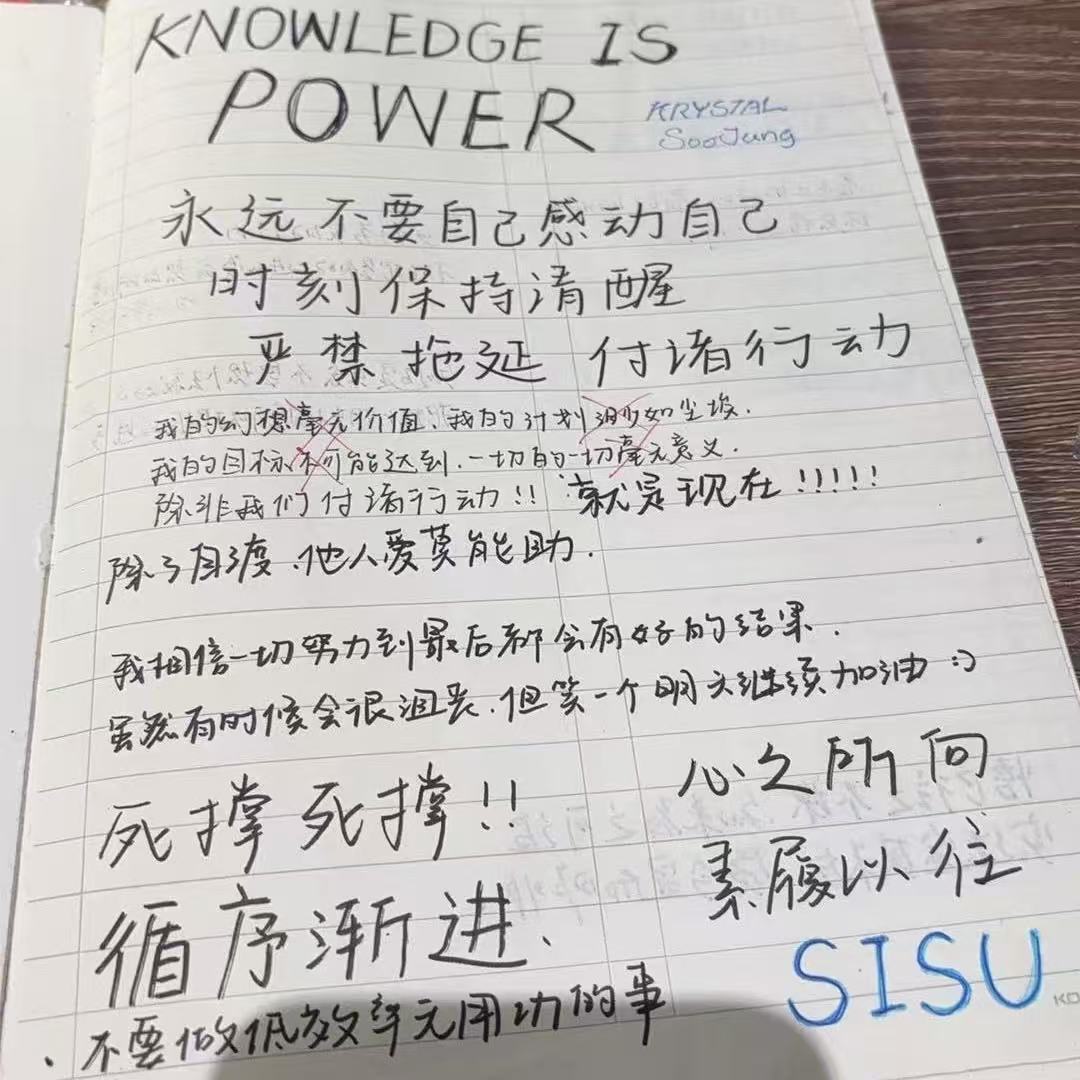 KNOWLEDGE IS
POWER
KRYSTAL
SooJung
永远不要自己感动自己
时刻保持清醒
严禁拖延 付诸行动
我的幻想毫无价值、我的计划渺如尘埃.
我的目标不可能达到.一切的一切毫无意义.
除非我们付诸行动!! 就是现在!!!!!
除了自渡.他人爱莫能助.
我相信一切努力到最后都会有好的结果.
虽然有时候会很沮丧.但笑一个明天继续加油:)
死撑死撑!!
心之所向
素履以往
循序渐进.
SISU
·不要做低效率无用功的事